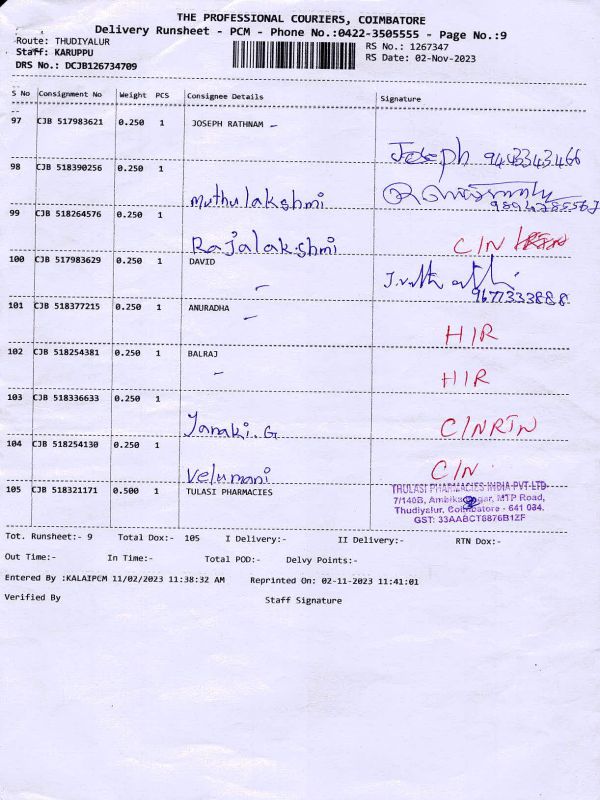 THE PROFESSIONAL COURIERS, COIMBATORE
Delivery Runsheet - PCM - Phone No.:0422-3505555 - Page No.:9
Route: THUDIYALUR
RS No.: 1267347
Staff: KARUPPU
RS Date: 02-Nov-2023
DRS No.: DCJB126734709
S No Consignment No Weight PCS Consignee Details Signature
97 CJB 517983621 0.250 1 JOSEPH RATHNAM -
Joseph 9443343466
98 CJB 518390256 0.250 1
Muthulakshmi
99 CJB 518264576 0.250 1
Rajalakshmi C/N
100 CJB 517983629 0.250 1 DAVID
9677333888
101 CJB 518377215 0.250 1 ANURADHA
H/R
102 CJB 518254381 0.250 1 BALRAJ
H/R
103 CJB 518336633 0.250 1
Janaki.G C/NRTN
104 CJB 518254130 0.250 1
Velumani C/N.
105 CJB 518321171 0.500 1 TULASI PHARMACIES
THULASI PHARMACIES INDIA PVT LTD
7/140B, Ambika Nagar, MTP Road,
Thudiyalur, Coimbatore - 641 034.
GST: 33AABCT8876B1ZF
Tot. Runsheet:- 9 Total Dox:- 105 I Delivery:- II Delivery:- RTN Dox:-
Out Time:- In Time:- Total POD:- Delvy Points:-
Entered By :KALAIPCM 11/02/2023 11:38:32 AM Reprinted On: 02-11-2023 11:41:01
Verified By Staff Signature